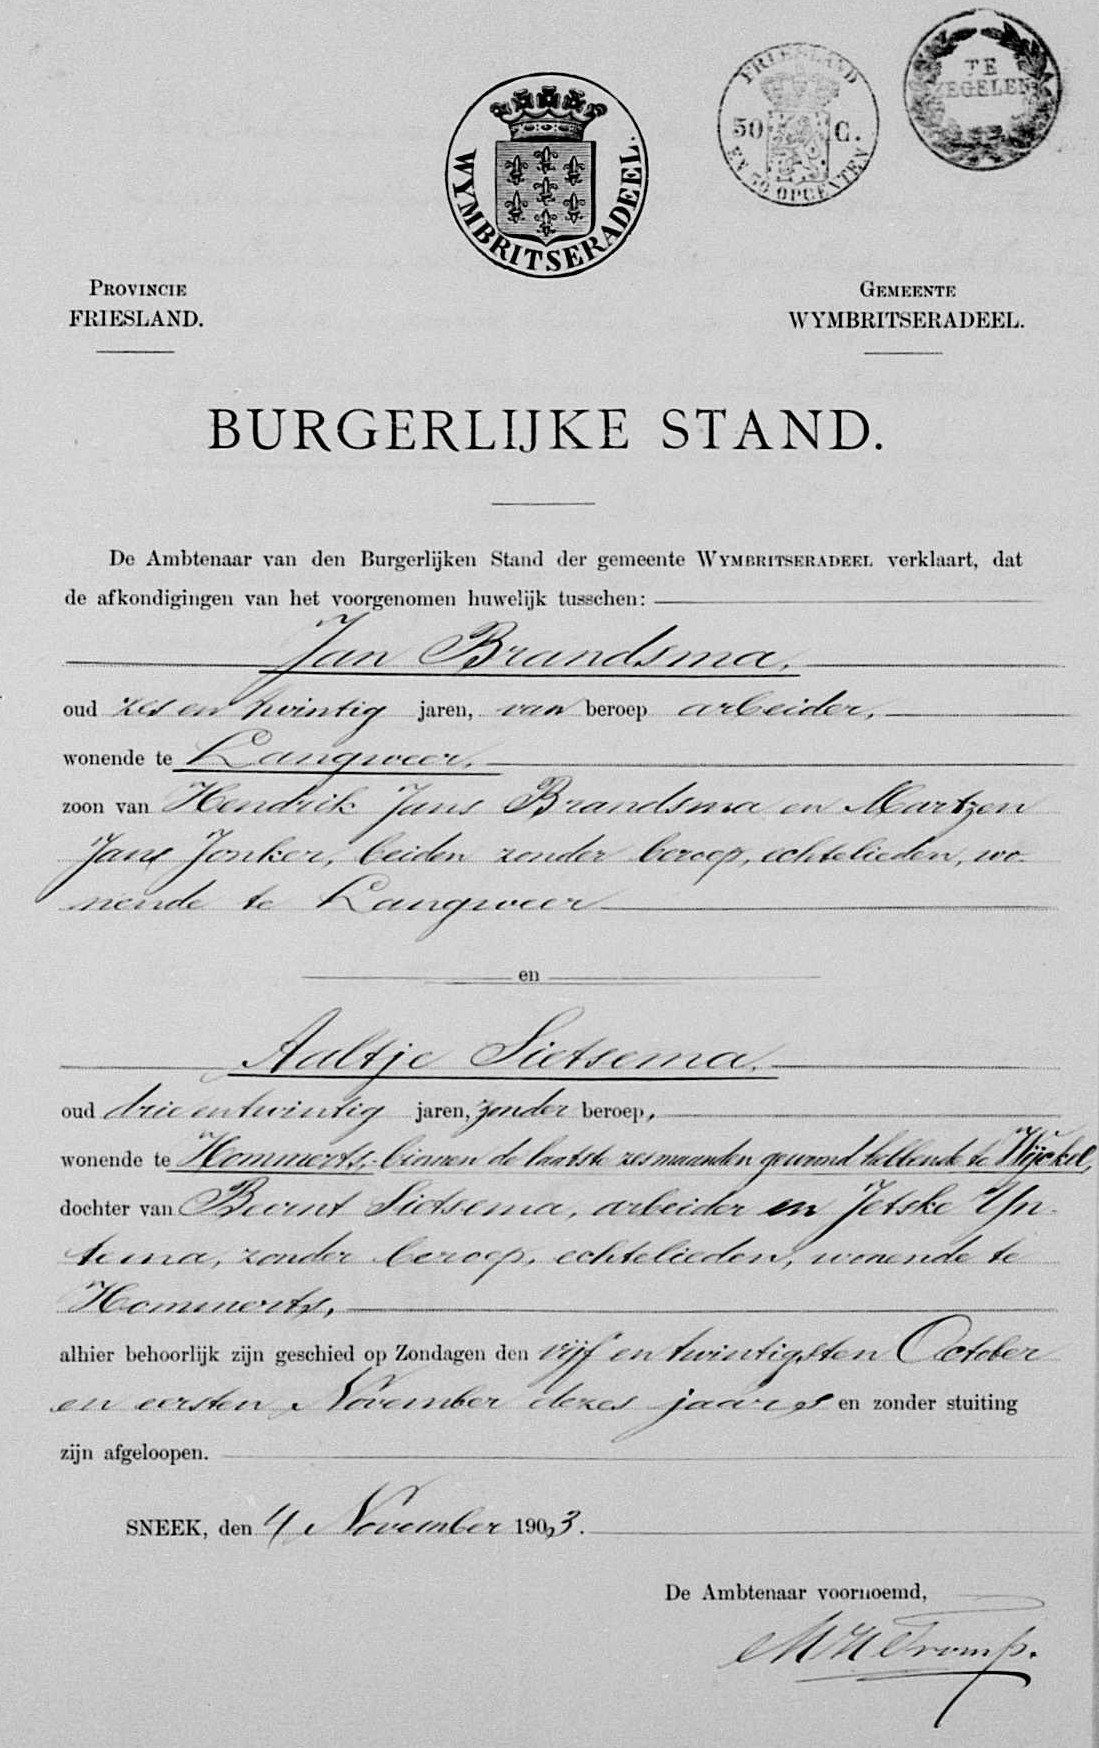 WYMBRITSERADEEL.
FRIESLAND
50 C.
EN 39 OPCENTEN
TE
ZEGELEN
PROVINCIE
FRIESLAND.
GEMEENTE
WYMBRITSERADEEL.
BURGERLIJKE STAND.
De Ambtenaar van den Burgerlijken Stand der gemeente WYMBRITSERADEEL verklaart, dat
de afkondigingen van het voorgenomen huwelijk tusschen:
Jan Brandsma,
oud zes en twintig jaren, van beroep arbeider,
wonende te Langweer,
zoon van Hendrik Jans Brandsma en Martzen
Jans Jonker, beiden zonder beroep, echtelieden, wo-
nende te Langweer
en
Aaltje Sietsema,
oud drie en twintig jaren, zonder beroep,
wonende te Hommerts, binnen de laatste zes maanden gewoond hebbende te Wijckel,
dochter van Beernt Sietsema, arbeider en Jetske Yn-
tema, zonder beroep, echtelieden, wonende te
Hommerts,
alhier behoorlijk zijn geschied op Zondagen den vijf en twintigsten October
en eersten November dezes jaars en zonder stuiting
zijn afgeloopen.
SNEEK, den 4 November 1903.
De Ambtenaar voornoemd,
Tromp.